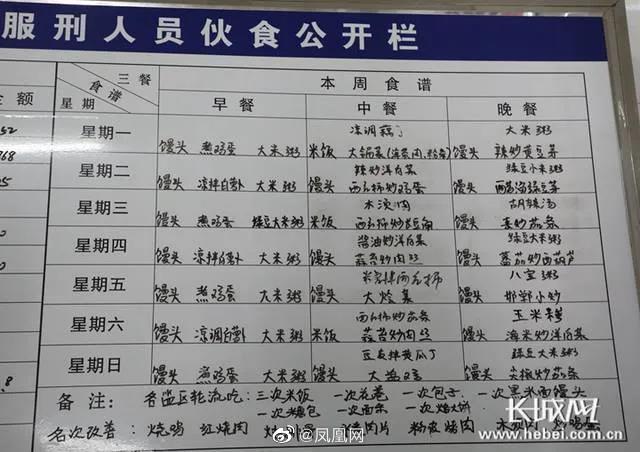 服刑人员伙食公开栏
三餐 食谱 星期
本周食谱
金额
早餐 中餐 晚餐
星期一
凉调藕丁 大米粥
馒头 煮鸡蛋 大米粥 米饭 大锅菜 馒头 辣炒黄豆芽
星期二
辣炒洋白菜 绿豆小米粥
馒头 凉拌白萝卜 大米粥 馒头 西红柿炒鸡蛋 馒头 醋溜绿豆芽
星期三
木须肉 胡辣汤
馒头 煮鸡蛋 绿豆大米粥 米饭 西红柿炒豆角 馒头 姜炒茄条
星期四
酱油炒洋白菜 绿豆大米粥
馒头 凉拌白萝卜 大米粥 馒头 蒜苔炒肉丝 馒头 番茄炒西葫芦
星期五
八宝粥
馒头 煮鸡蛋 大米粥 馒头 大烩菜 馒头 邯郸小炒
星期六
西红柿炒茄条 玉米糁
馒头 凉调白萝卜 大米粥 米饭 蒜苔炒肉丝 馒头 海米炒洋白菜
星期日
黄瓜丁 绿豆大米粥
馒头 煮鸡蛋 大米粥 馒头 馒头 尖椒炒茄条
备注: 各监区轮流吃: 三次米饭 一次花卷 一次包子 一次黑米面馒头
一次糖包 一次面条 一次
每次改善: 烧鸡 红烧肉 肉片
@凤凰网
长城网
www.hebei.com.cn